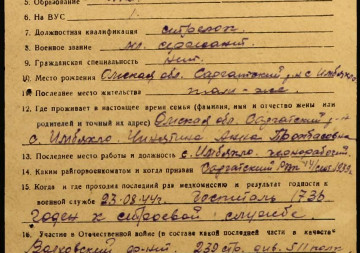 5. Образование
6. На ВУС
7. Должностная квалификация стрелок
8. Военное звание мл. сержант
9. Гражданская специальность нет
10. Место рождения Омская обл. Саргатский р-н с.
11. Последнее место жительства там-же
12. Где проживает в настоящее время семья (фамилия, имя и отчество жены или
родителей и точный их адрес) Омская обл. Саргатский р-н
с. Анна
13. Последнее место работы и должность с.
14. Каким райгорвоенкоматом и когда призван Саргатский РВК
15. Когда и где проходил последний раз медкомиссию и результат годности к
военной службе 23.08.44г. Госпиталь 1736
Годен к строевой службе
16. Участие в Отечественной войне (в составе какой последней части и качестве
Волховский фронт. 239 стр. див. 511 полк